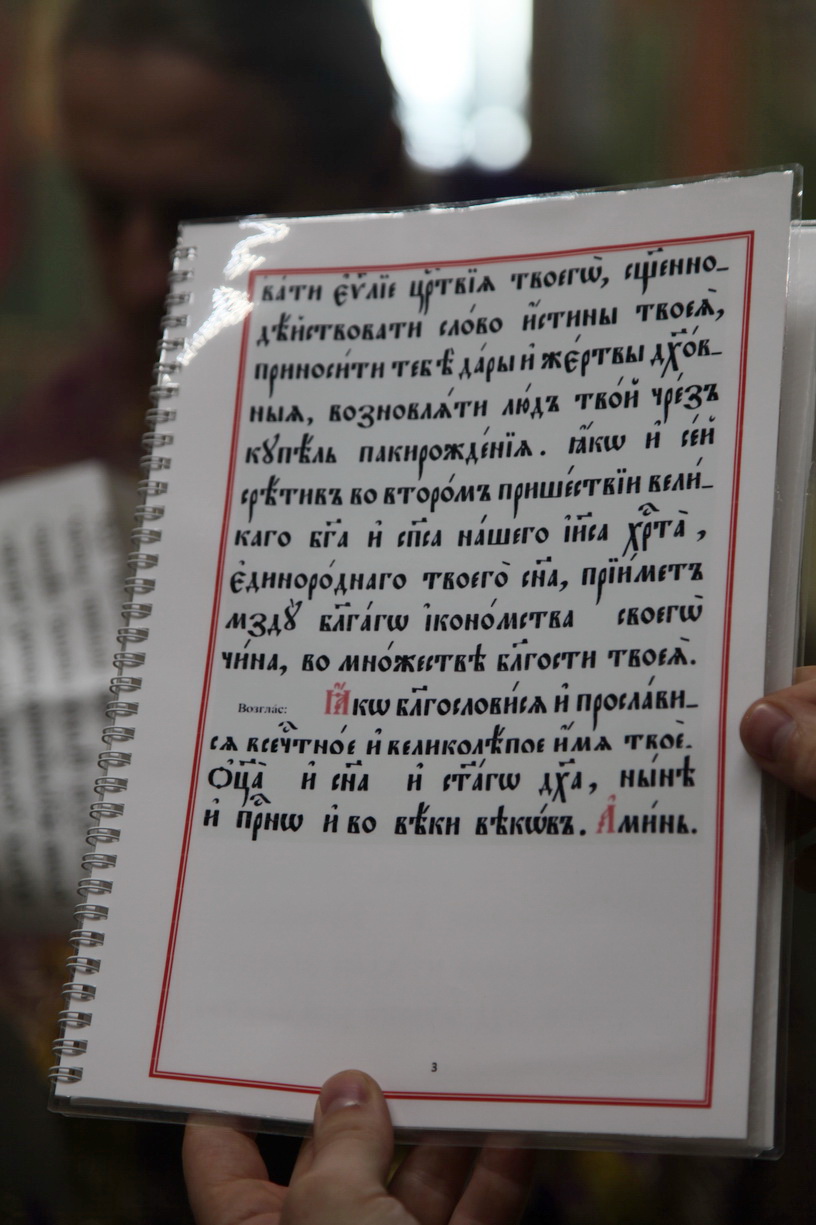 ва́ти є҆ѵⷢ҇лїе црⷭ҇твїѧ твоегѡ̀, сщ҃енно-
дѣ́йствовати сло́во и҆́стины твоеѧ̀,
приноси́ти тебѣ̀ да́ры и҆ же́ртвы дх҃о́в-
ныѧ, возновлѧ́ти лю́дъ тво́й чре́зъ
кꙋпѣ́ль пакирожде́нїѧ. ꙗ҆́кѡ и҆ се́й
срѣ́тивъ во второ́мъ прише́ствїи вели́-
каго бг҃а и҆ сп҃са на́шего і҆и҃са хрⷭ҇та̀,
є҆диноро́днаго твоего̀ сн҃а, прїи́метъ
мздꙋ̀ бл҃га́гѡ і҆коно́мства своегѡ̀
чи́на, во мно́жествѣ бл҃гости твоеѧ̀.
Возгла́с: Ꙗ҆́кѡ бл҃гослови́сѧ и҆ просла́ви-
сѧ всечⷭ҇тно́е и҆ великолѣ́пое и҆́мѧ твоѐ.
Ѻ҆ц҃а̀ и҆ сн҃а и҆ ст҃а́гѡ дх҃а, ны́нѣ
и҆ прⷭ҇нѡ и҆ во вѣ́ки вѣкѡ́въ. А҆ми́нь.
3